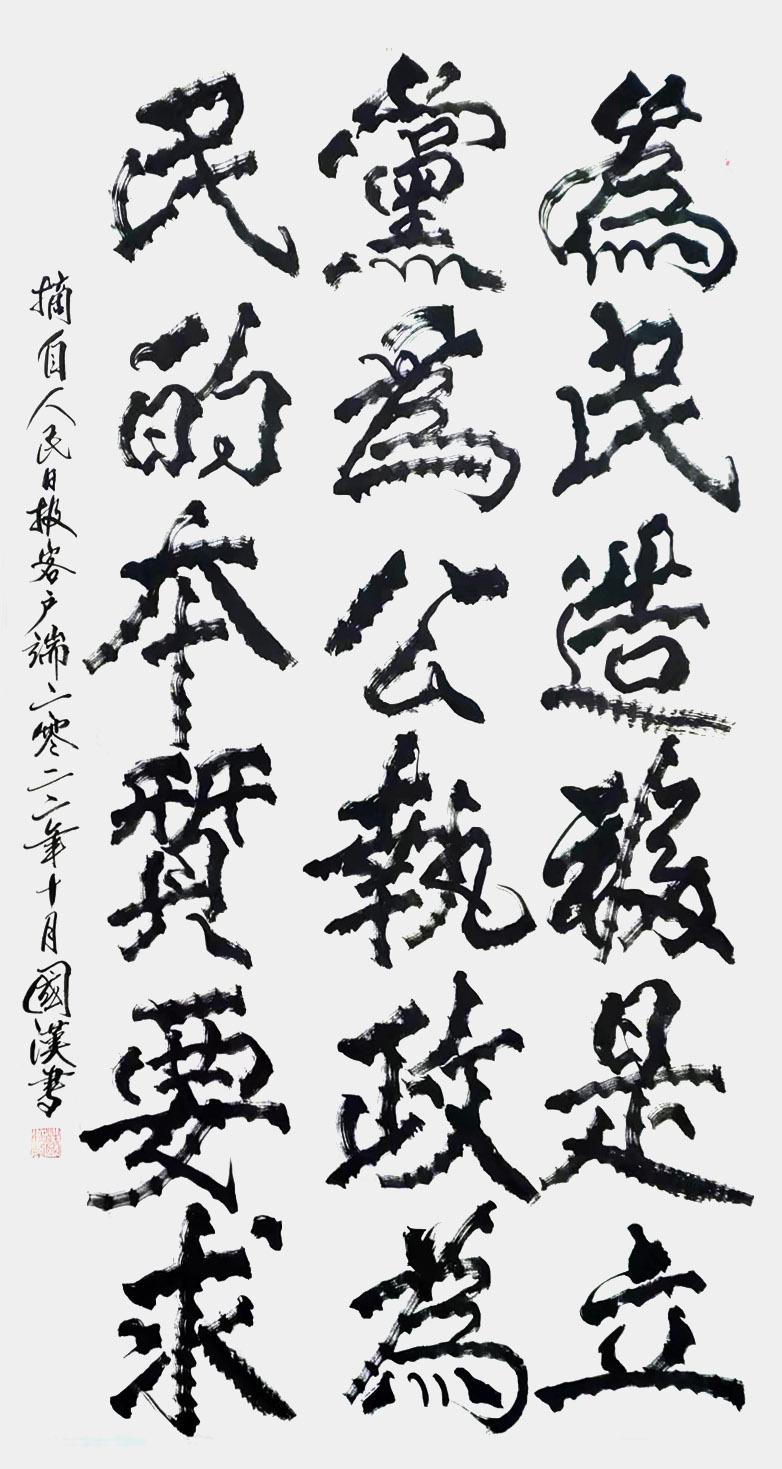 為民造福是立
黨為公執政為
民的本質要求
摘自人民日报客户端二零二二年十月國漢書